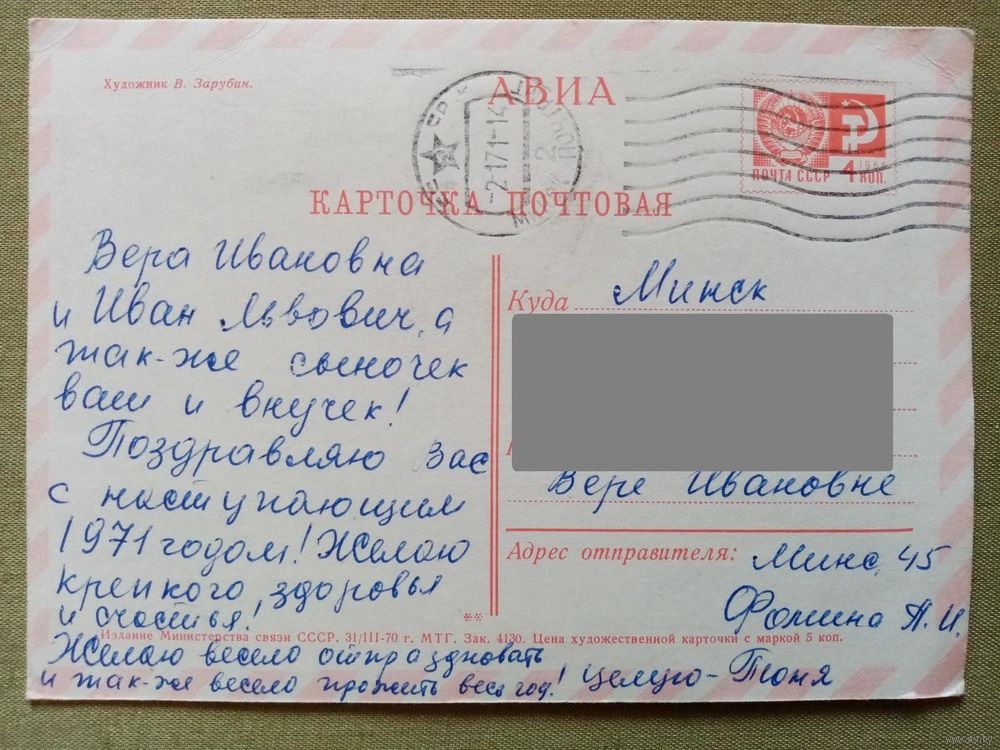 Художник В. Зарубин.
АВИА
-2-171-14
ПОЧТА СССР
4 КОП.
КАРТОЧКА ПОЧТОВАЯ
Вера Ивановна
и Иван Львович, а
так-же сыночек
ваш и внучек!
Поздравляю Вас
с наступающим
1971 годом! Желаю
крепкого, здоровья
и счастья!
Желаю весело отпраздновать
и так-же весело прожить весь год! Целую - Тоня
Куда Минск
Вере Ивановне
Адрес отправителя: Минс, 45
Фомина А.И.
Издание Министерства связи СССР. 31/III-70 г. МТГ. Зак. 4130. Цена художественной карточки с маркой 5 коп.
www.ay.by